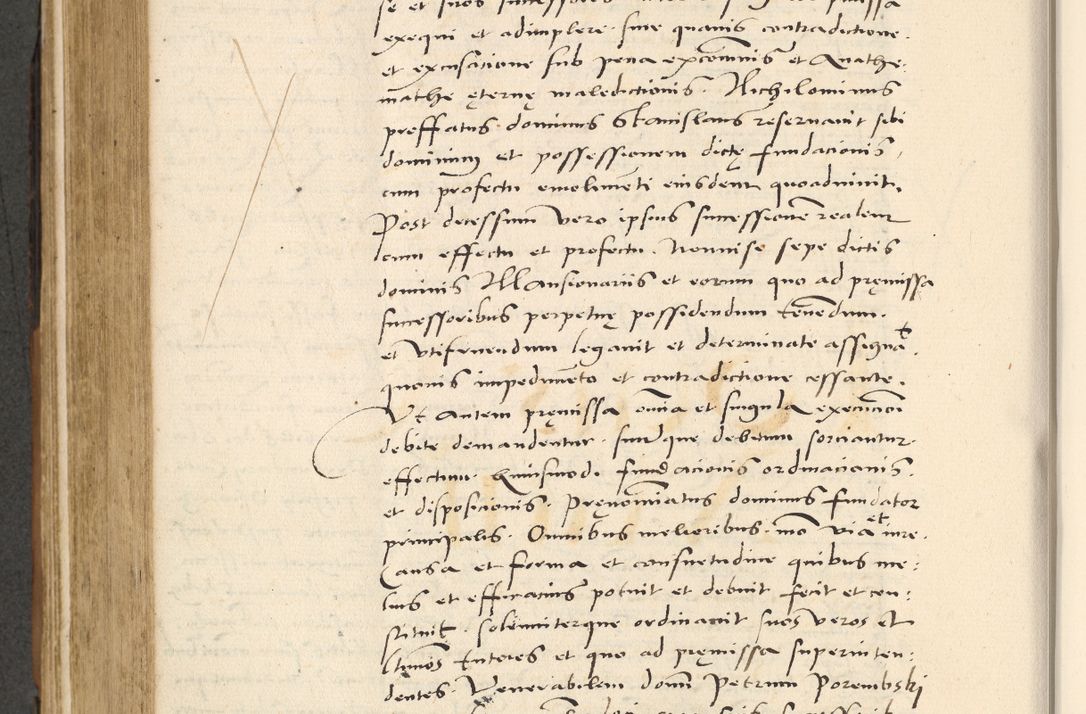 exequi et adimplere sine quavis contradictione.
et excusatione sub pena excõmnis et Anathe:
mathe ęternę maledictionis. Nichilominus
preffatus dominus Stanislaus reservavit sibi
dominium et possessionem dictę fundacionis,
cum profectu emolimẽti eiusdem quoadvixit.
Post decessum vero ipsius successionẽ realem
cum effectu et profectu. Nonnise sepe dictis
dominis Mansionariis et eorum quo ad pręmissa
successoribus perpetuę possidendum tẽnedum.
et utifruendum legavit et determinate assignãt.
quovis impedimẽto et contradictione cessante.
Ut Autem pręmissa om̃ia et singula execucõi
debite demandentur. suumque debitum sorciantur
effectum huiusmodi fundacionis ordinacionis.
et disposicionis. Pręnom̃iatus dominus fundator
principalis. Omnibus melioribus mõ via et iure.
Causa et forma et consuetudine quibus me:
lius et efficacius potuit et debuit fecit et con:
stituit. solemniterque ordinavit suos veros et
Ltĩmos tutores et quo ad pręmissa superinten:
dentes. Venerabilem domñ Petrum Porembski